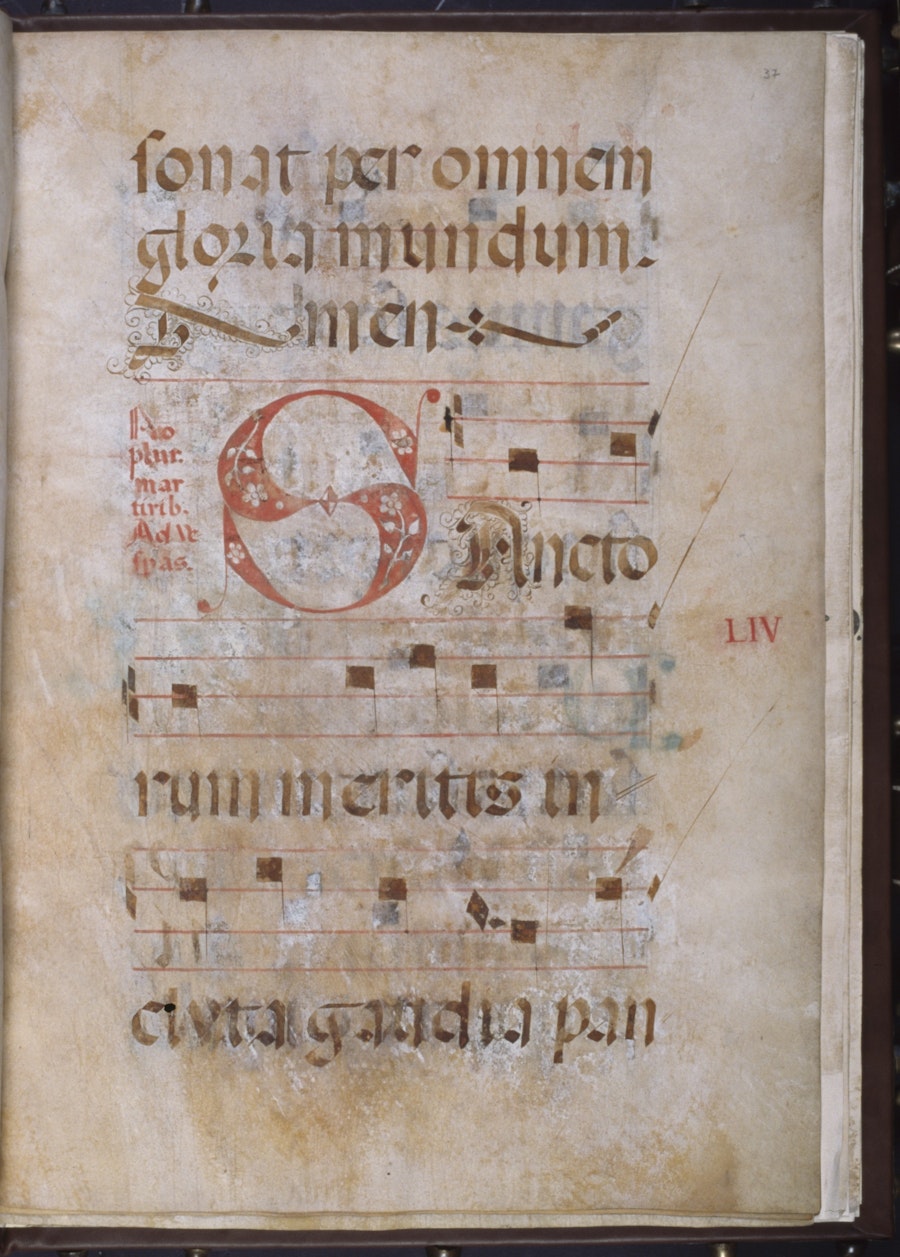 37
sonat per omnem
gloria mundum.
Amen
Pro
plur.
mar
tirib.
Ad ve
spas.
SAncto
LIV
rum meritis in
clyta gaudia pan